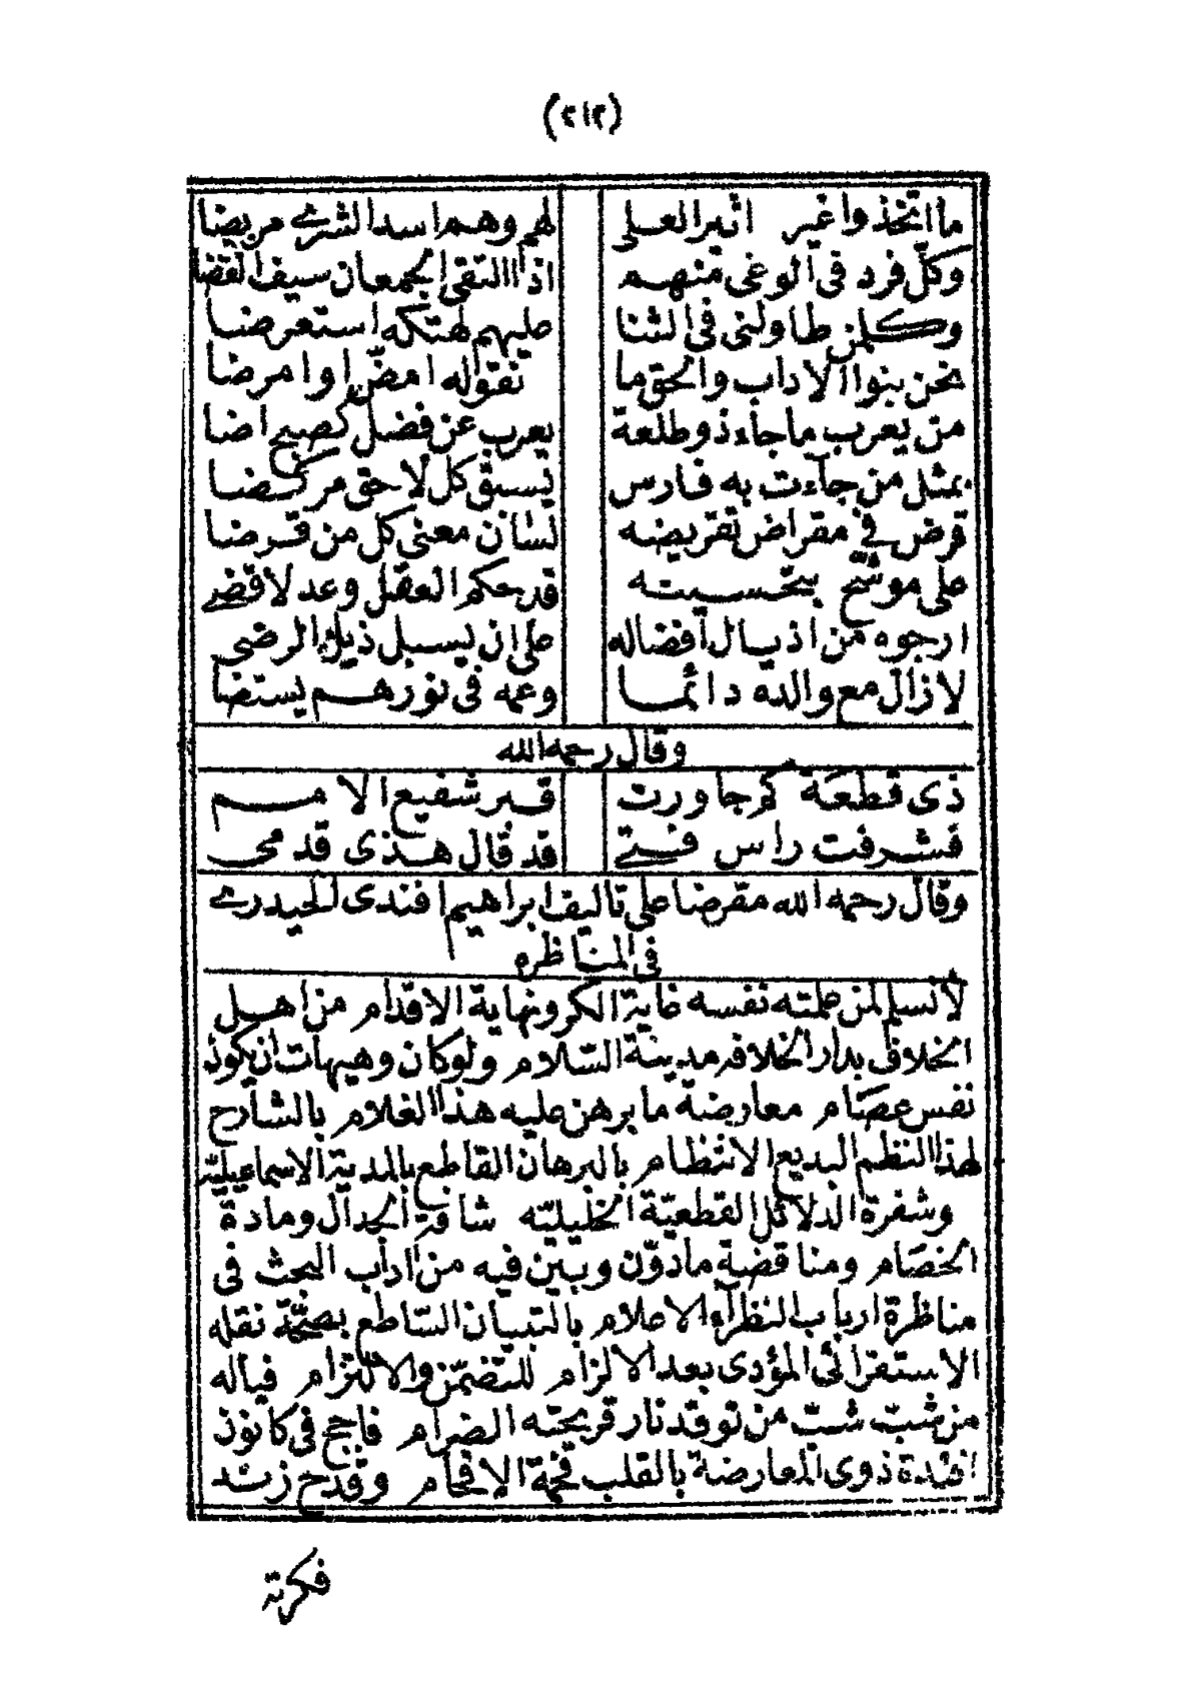 (٢١٢)
ما اتخذوا غير اثير العلى لهم وهم اسد الشرى مربضا
وكل فرد في الوغى منهم اذا التقى الجمعان سيف القضا
وكلمن طاولني في الثنا عليهم لهتكه استعرضا
نحن بنوا الاداب والحق ما نقوله امضّ او امرضا
من يعرب ماجاء ذو طلعة يعرب عن فضل كصبح اضا
بمثل من جاءت به فارس يسبق كل لاحق مركضا
قرض في مقراض تقريضه لسان معنى كل من قرضا
على موشح بتخسيته قد حكم العقل وعدلا قضى
ارجوه من اذيال افضاله على ان يسبل ذيل الرضى
لا زال مع والده دائما وعمه في نورهم يستضا
وقال رحمه الله
ذى قطعة كم جاورت قبر شفيع الامم
فشرفت راس فتى قد قال هذى قدمى
وقال رحمه الله مقرضا على تاليف ابراهيم افندى الحيدرى
في المناظره
لا نسلم لمن علمته نفسه غاية الكر ونهاية الاقدام من اهل
الخلاف بدار الخلافه مدينة السّلام ولو كان وهيهات ان يكون
نفس عصام معارضة ما برهن عليه هذا الغلام بالشارح
لهذا النظم البديع الانتظام بالبرهان القاطع بالمدية الاسماعيليّه
وشفرة الدلائل القطعيّة الخليليّه شافة الجدال ومادة
الخصام ومناقضة مادوّن وبين فيه من اداب البحث في
مناظرة ارباب النظراء الاعلام بالتبيان السّاطع بصحّة نقله
الاستقرائى المؤدى بعد الالزام للتضمّن والالتزام فياله
من شبّ شبّ من توقد نار قريحته الضرام فاجج في كانون
افئدة ذوى المعارضة بالقلب فحمة الافحام وقدح زند
فكرته